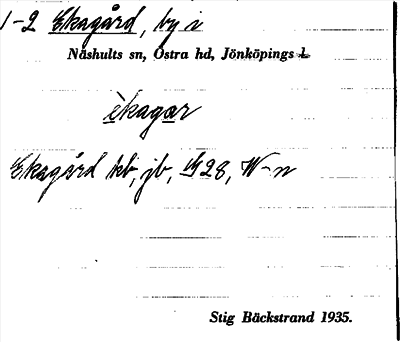 1-2 Ekagård, by i
Näshults sn, Östra hd, Jönköpings l.
èkagar
Ekagård kb, jb, G28, W-n
Stig Bäckstrand 1935.